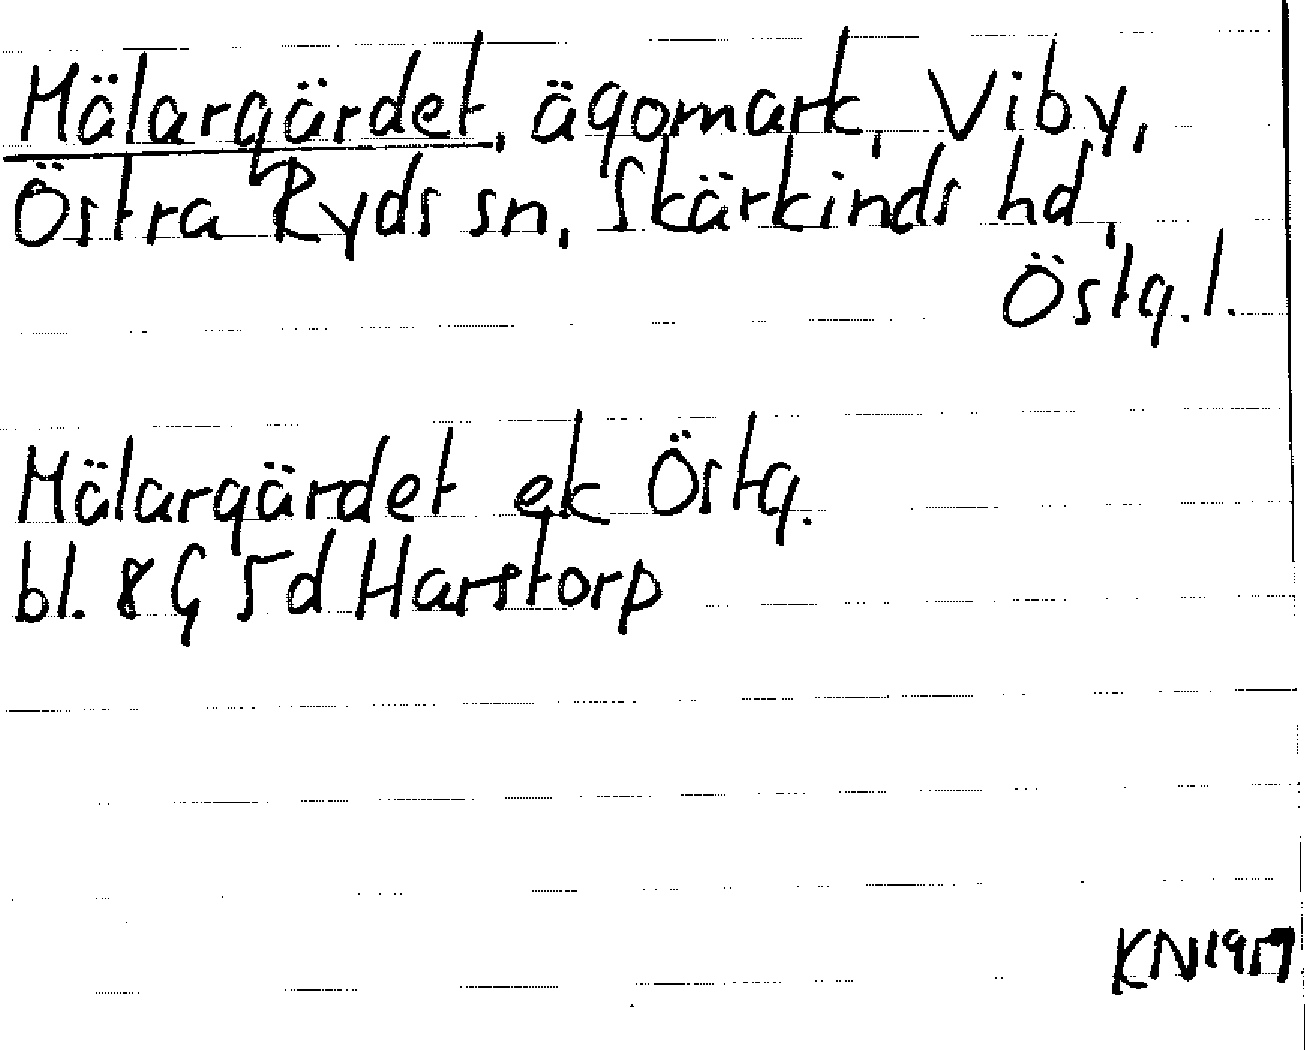 Mälargärdet, ägomark, Viby,
Östra Ryds sn, Skärkinds hd,
Östg.l.
Mälargärdet ek Östg.
bl. 8G 5d Harstorp
KN